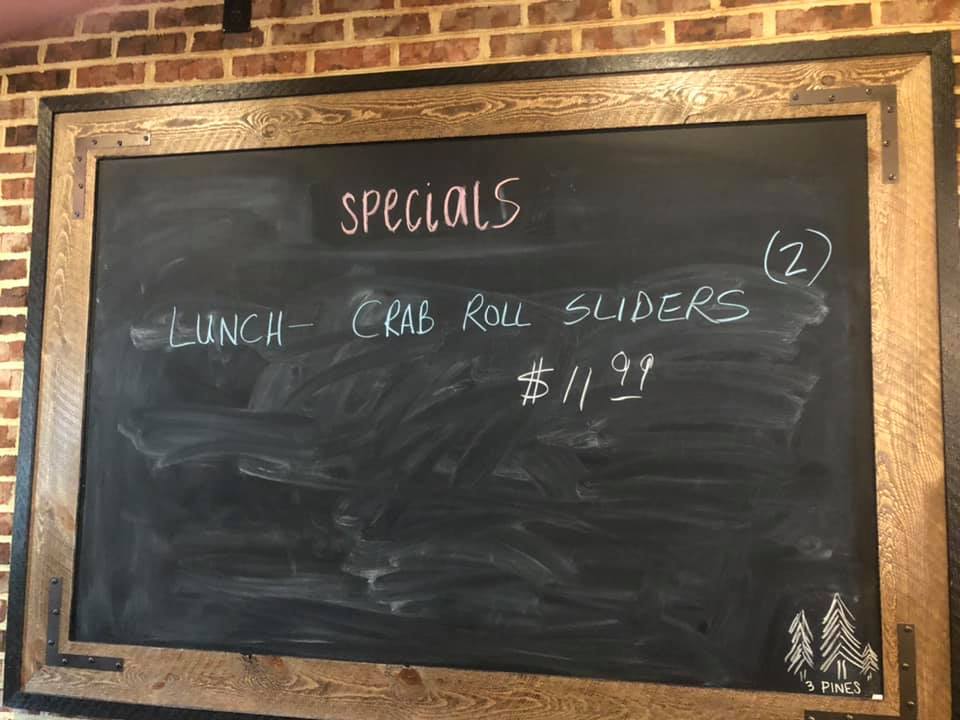 SPECIALS
(2)
LUNCH- CRAB ROLL SLIDERS
$11.99
3 PINES